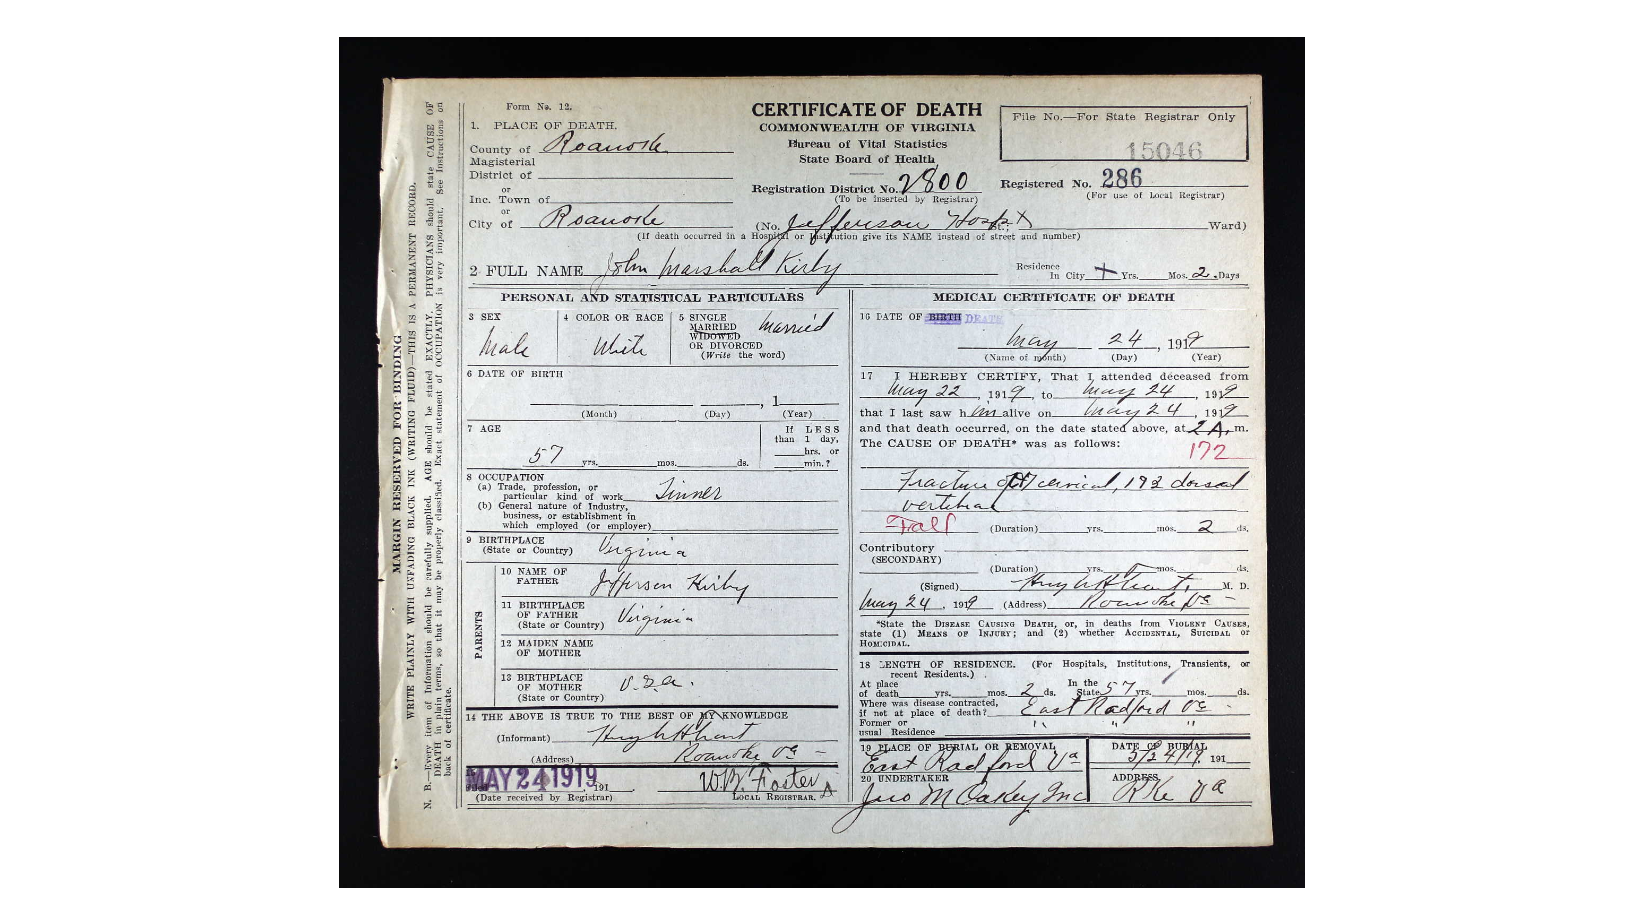 Form No. 12.
1. PLACE OF DEATH.
County of Roanoke
Magisterial
District of
or
Inc. Town of
or
City of Roanoke
CERTIFICATE OF DEATH
COMMONWEALTH OF VIRGINIA
Bureau of Vital Statistics
State Board of Health
Registration District No. 2800
(To be Inserted by Registrar)
File No.—For State Registrar Only
15046
Registered No. 286
(For use of Local Registrar)
(No. Jefferson Hospt St.; Ward)
(If death occurred in a Hospital or Institution give its NAME instead of street and number)
2 FULL NAME John Marshall Kirby
Residence
In City Yrs. Mos. 2 Days
PERSONAL AND STATISTICAL PARTICULARS
3 SEX
Male
4 COLOR OR RACE
White
5 SINGLE
MARRIED
WIDOWED
OR DIVORCED
(Write the word)
Married
6 DATE OF BIRTH
, 1
(Month) (Day) (Year)
7 AGE
57 yrs. mos. ds.
If LESS
than 1 day,
hrs. or
min.?
8 OCCUPATION
(a) Trade, profession, or
particular kind of work Tinner
(b) General nature of Industry,
business, or establishment in
which employed (or employer)
9 BIRTHPLACE
(State or Country) Virginia
PARENTS
10 NAME OF
FATHER Jefferson Kirby
11 BIRTHPLACE
OF FATHER
(State or Country) Virginia
12 MAIDEN NAME
OF MOTHER
13 BIRTHPLACE
OF MOTHER
(State or Country) U.S.A.
14 THE ABOVE IS TRUE TO THE BEST OF MY KNOWLEDGE
(Informant)
(Address) Roanoke Va
15
MAY 24 1919
Filed , 191
(Date received by Registrar)
W.B. Foster
LOCAL REGISTRAR.
MEDICAL CERTIFICATE OF DEATH
16 DATE OF BIRTH DEATH
May 24, 1919
(Name of month) (Day) (Year)
17 I HEREBY CERTIFY, That I attended deceased from
May 22, 1919, to May 24, 1919
that I last saw him alive on May 24, 1919
and that death occurred, on the date stated above, at 2 A. m.
The CAUSE OF DEATH* was as follows:
172
Fracture of cervical, 1 & 2 dorsal
vertebrae
Fall
(Duration) yrs. mos. 2 ds.
Contributory
(SECONDARY)
(Duration) yrs. mos. ds.
(Signed) M. D.
May 24, 1919 (Address) Roanoke Va
*State the DISEASE CAUSING DEATH, or, in deaths from VIOLENT CAUSES,
state (1) MEANS OF INJURY; and (2) whether ACCIDENTAL, SUICIDAL or
HOMICIDAL.
18 LENGTH OF RESIDENCE. (For Hospitals, Institutions, Transients, or
recent Residents.)
At place
of death yrs. mos. 2 ds.
In the
State 57 yrs. mos. ds.
Where was disease contracted,
if not at place of death? East Radford Va
Former or
usual Residence " " "
19 PLACE OF BURIAL OR REMOVAL
East Radford Va
DATE OF BURIAL
5/24/19 191
20 UNDERTAKER
Jno M Oakey Inc
ADDRESS
Rke Va
MARGIN RESERVED FOR BINDING
WRITE PLAINLY WITH UNFADING BLACK INK (WRITING FLUID)—THIS IS A PERMANENT RECORD.
N. B.—Every item of Information should be carefully supplied. AGE should be stated EXACTLY. PHYSICIANS should state CAUSE OF
DEATH in plain terms, so that it may be properly classified. Exact statement of OCCUPATION is very important. See Instructions on
back of certificate.